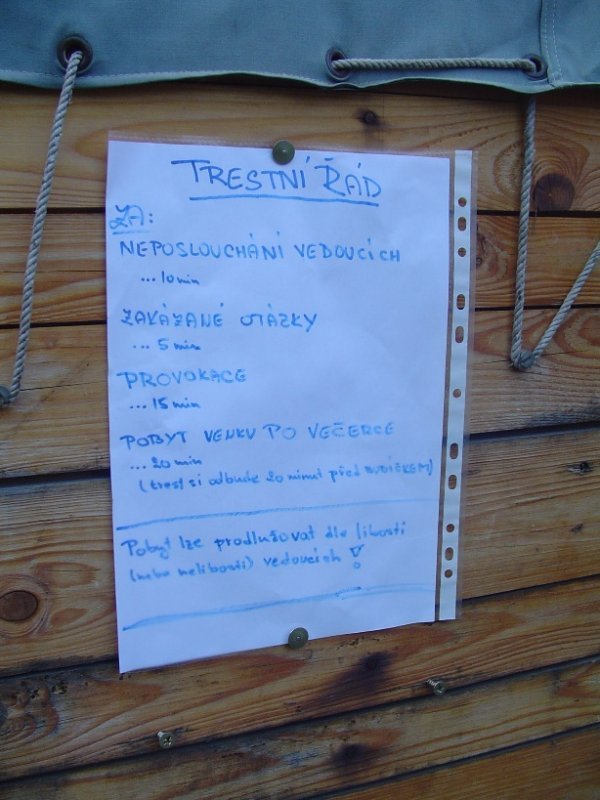 TRESTNÍ ŘÁD
ZA:
NEPOSLOUCHÁNÍ VEDOUCÍCH
... 10 min
ZAKÁZANÉ OTÁZKY
... 5 min
PROVOKACE
... 15 min
POBYT VENKU PO VEČERCE
... 20 min
(trest si odbude 20 minut před BUDÍČKEM)
Pobyt lze prodlužovat dle libosti
(nebo nelibosti) vedoucích !